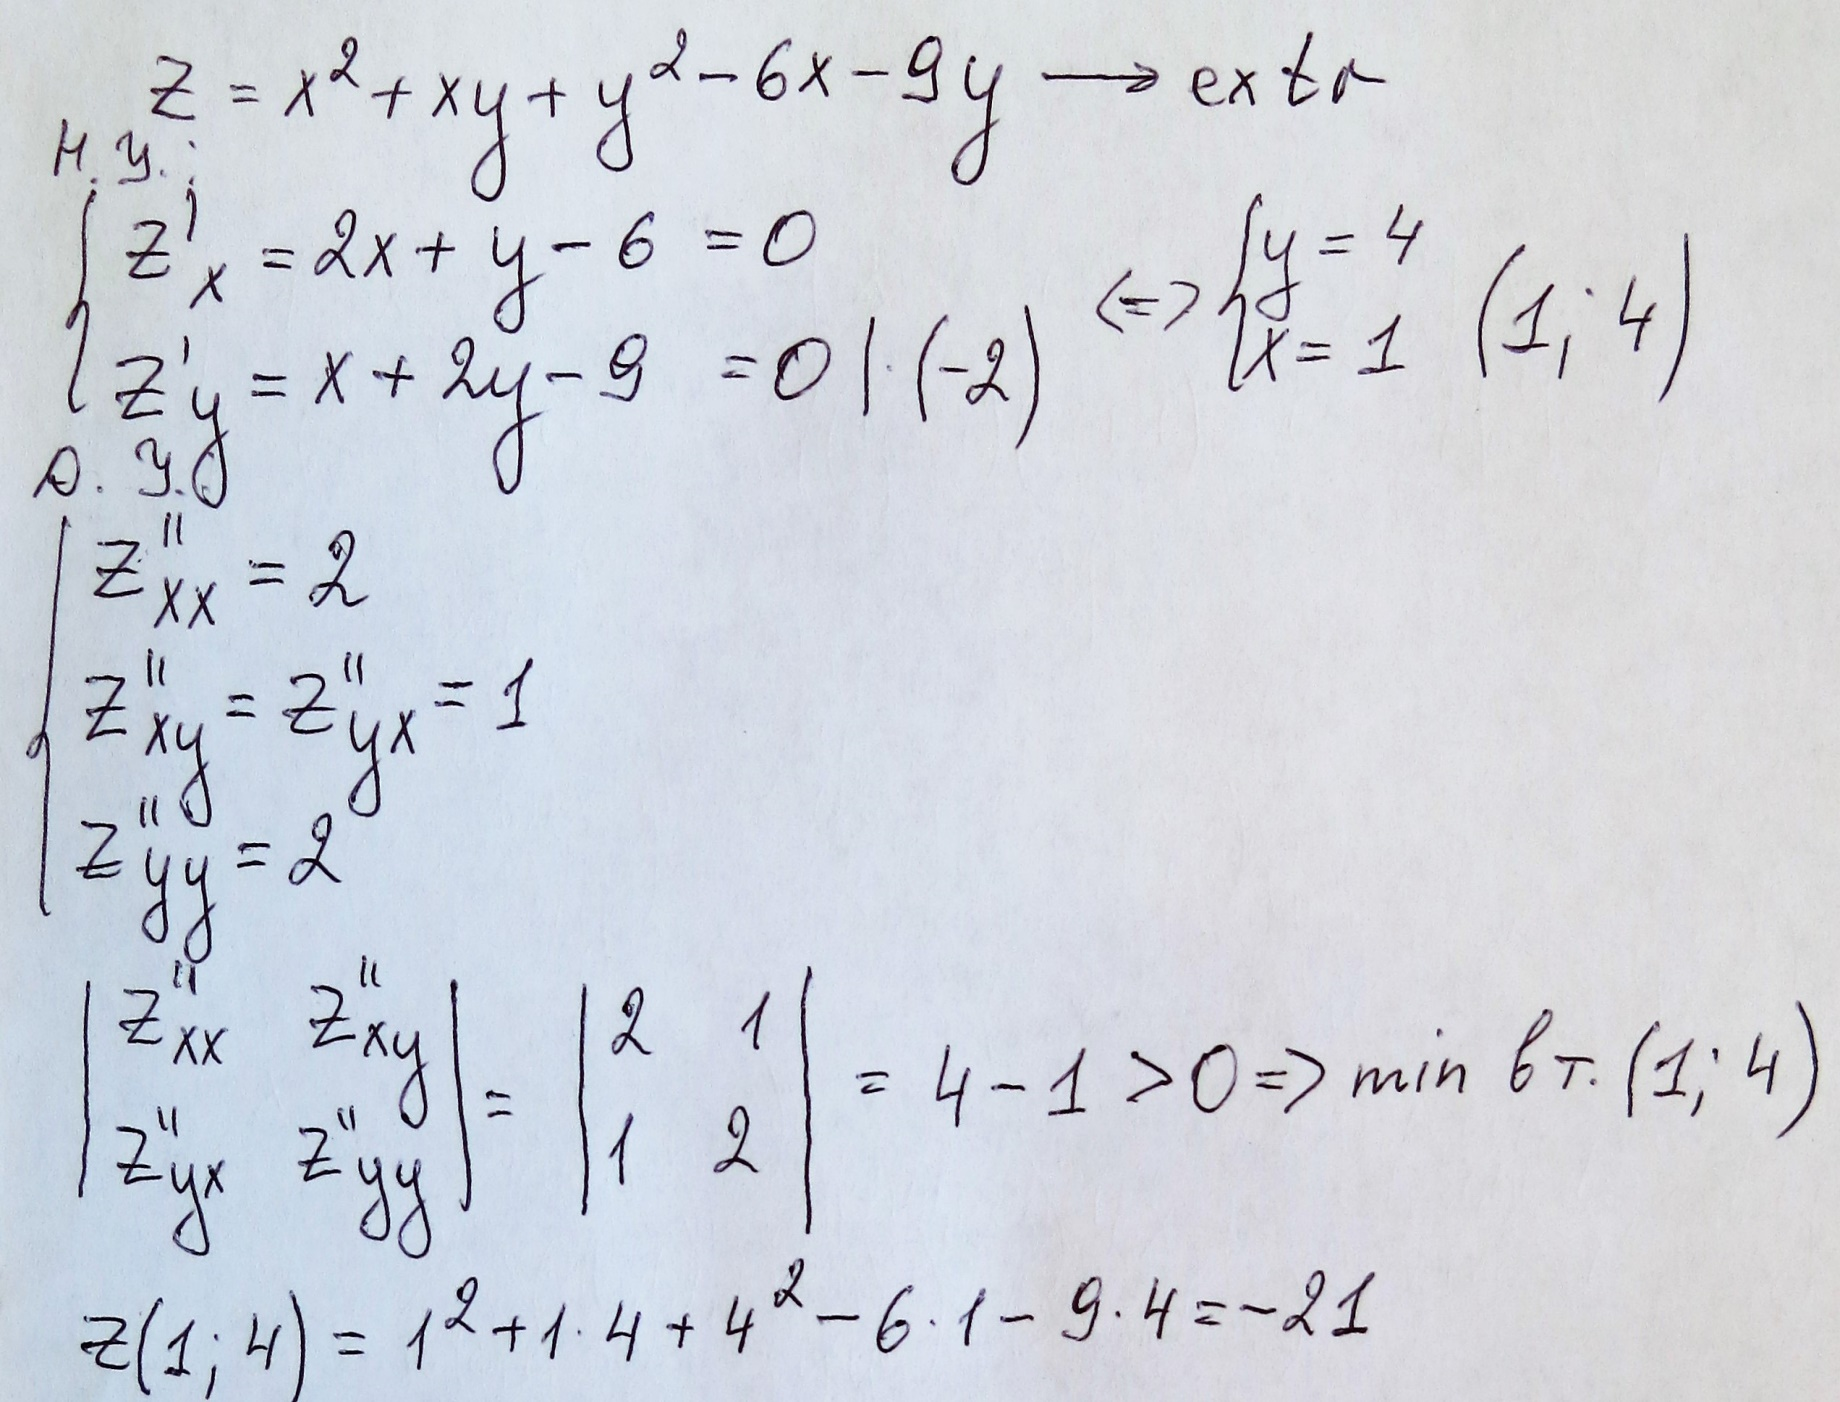 z = x² + xy + y² - 6x - 9y → extr
Н.У.:
{ z'x = 2x + y - 6 = 0
{ z'y = x + 2y - 9 = 0 | · (-2) <=> { y = 4 x = 1 (1; 4)
Д.У.
z''xx = 2
z''xy = z''yx = 1
z''yy = 2
| z''xx z''xy | = | 2 1 | = 4 - 1 > 0 => min в т. (1; 4)
| z''yx z''yy | | 1 2 |
z(1; 4) = 1² + 1 · 4 + 4² - 6 · 1 - 9 · 4 = -21